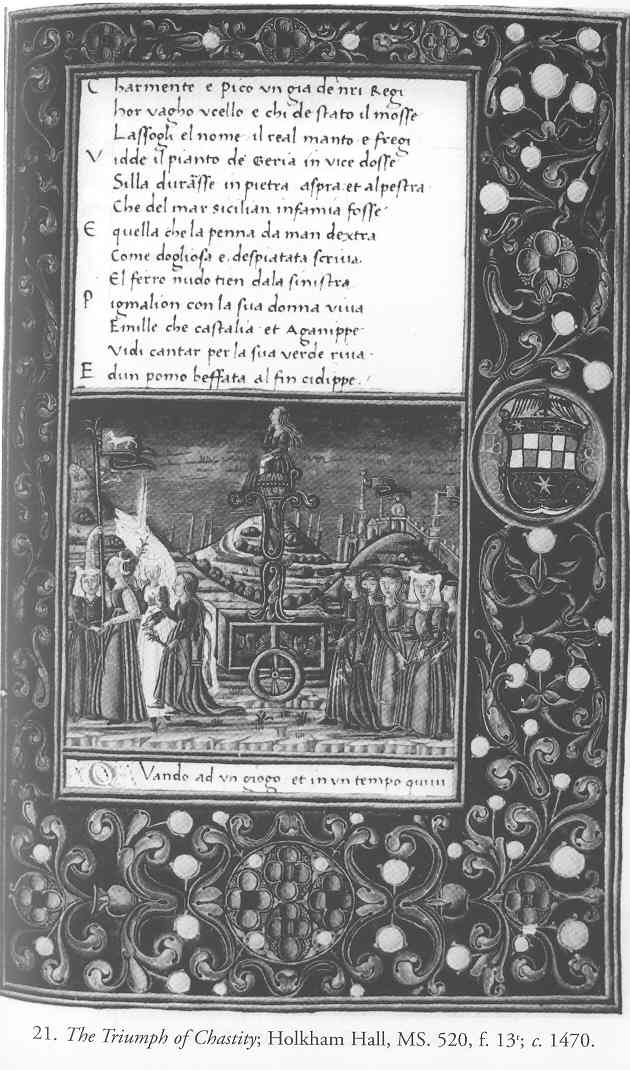 C harmente e Pico un gia de nr̃i Regi
hor vagho vcello e chi de stato il mosse
Lassogli el nome il real manto e fregi
V idde il pianto de Geria in vice dosse
Silla durasse in pietra aspra et alpestra
Che del mar sicilian infamia fosse
E quella che la penna da man dextra
Come dogliosa e despiatata scriua
El ferro nudo tien dala sinistra
P igmalion con la sua donna viua
E mille che castalia et Aganippe
Vidi cantar per la sua verde riua
E dun pomo beffata al fin cidippe
QVando ad vn giogo et in vn tempo quiui
21. The Triumph of Chastity; Holkham Hall, MS. 520, f. 13r; c. 1470.